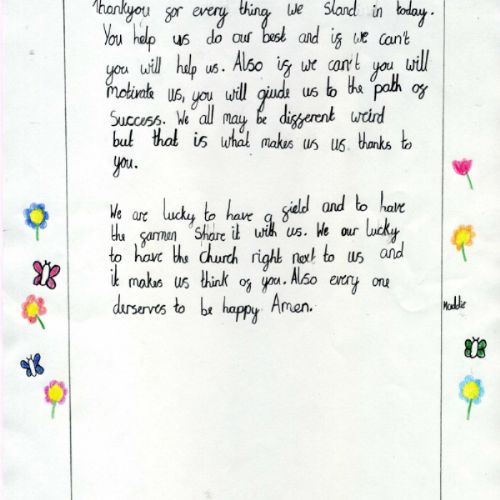 Thankyou for every thing we stand in today.
You help us do our best and if we can't
you will help us. Also if we can't you will
motivate us, you will giude us to the path of
success. We all may be different weird
but that is what makes us us thanks to
you.
We are lucky to have a field and to have
the farmer share it with us. We our lucky
to have the church right next to us and
it makes us think of you. Also every one
derserves to be happy Amen.
Maddie